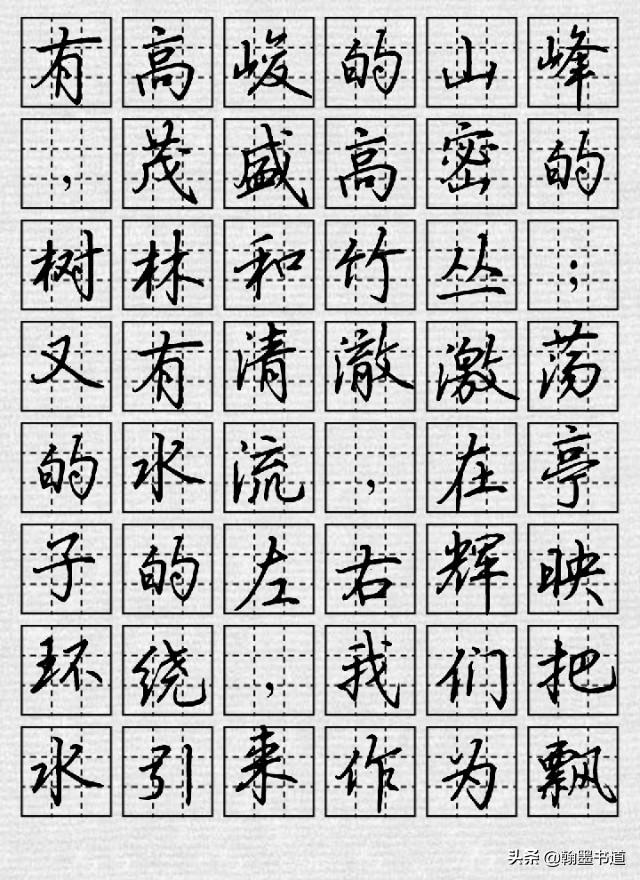 有高峻的山峰
，茂盛高密的
树林和竹丛；
又有清澈激荡
的水流，在亭
子的左右辉映
环绕，我们把
水引来作为飘
头条 @翰墨书道